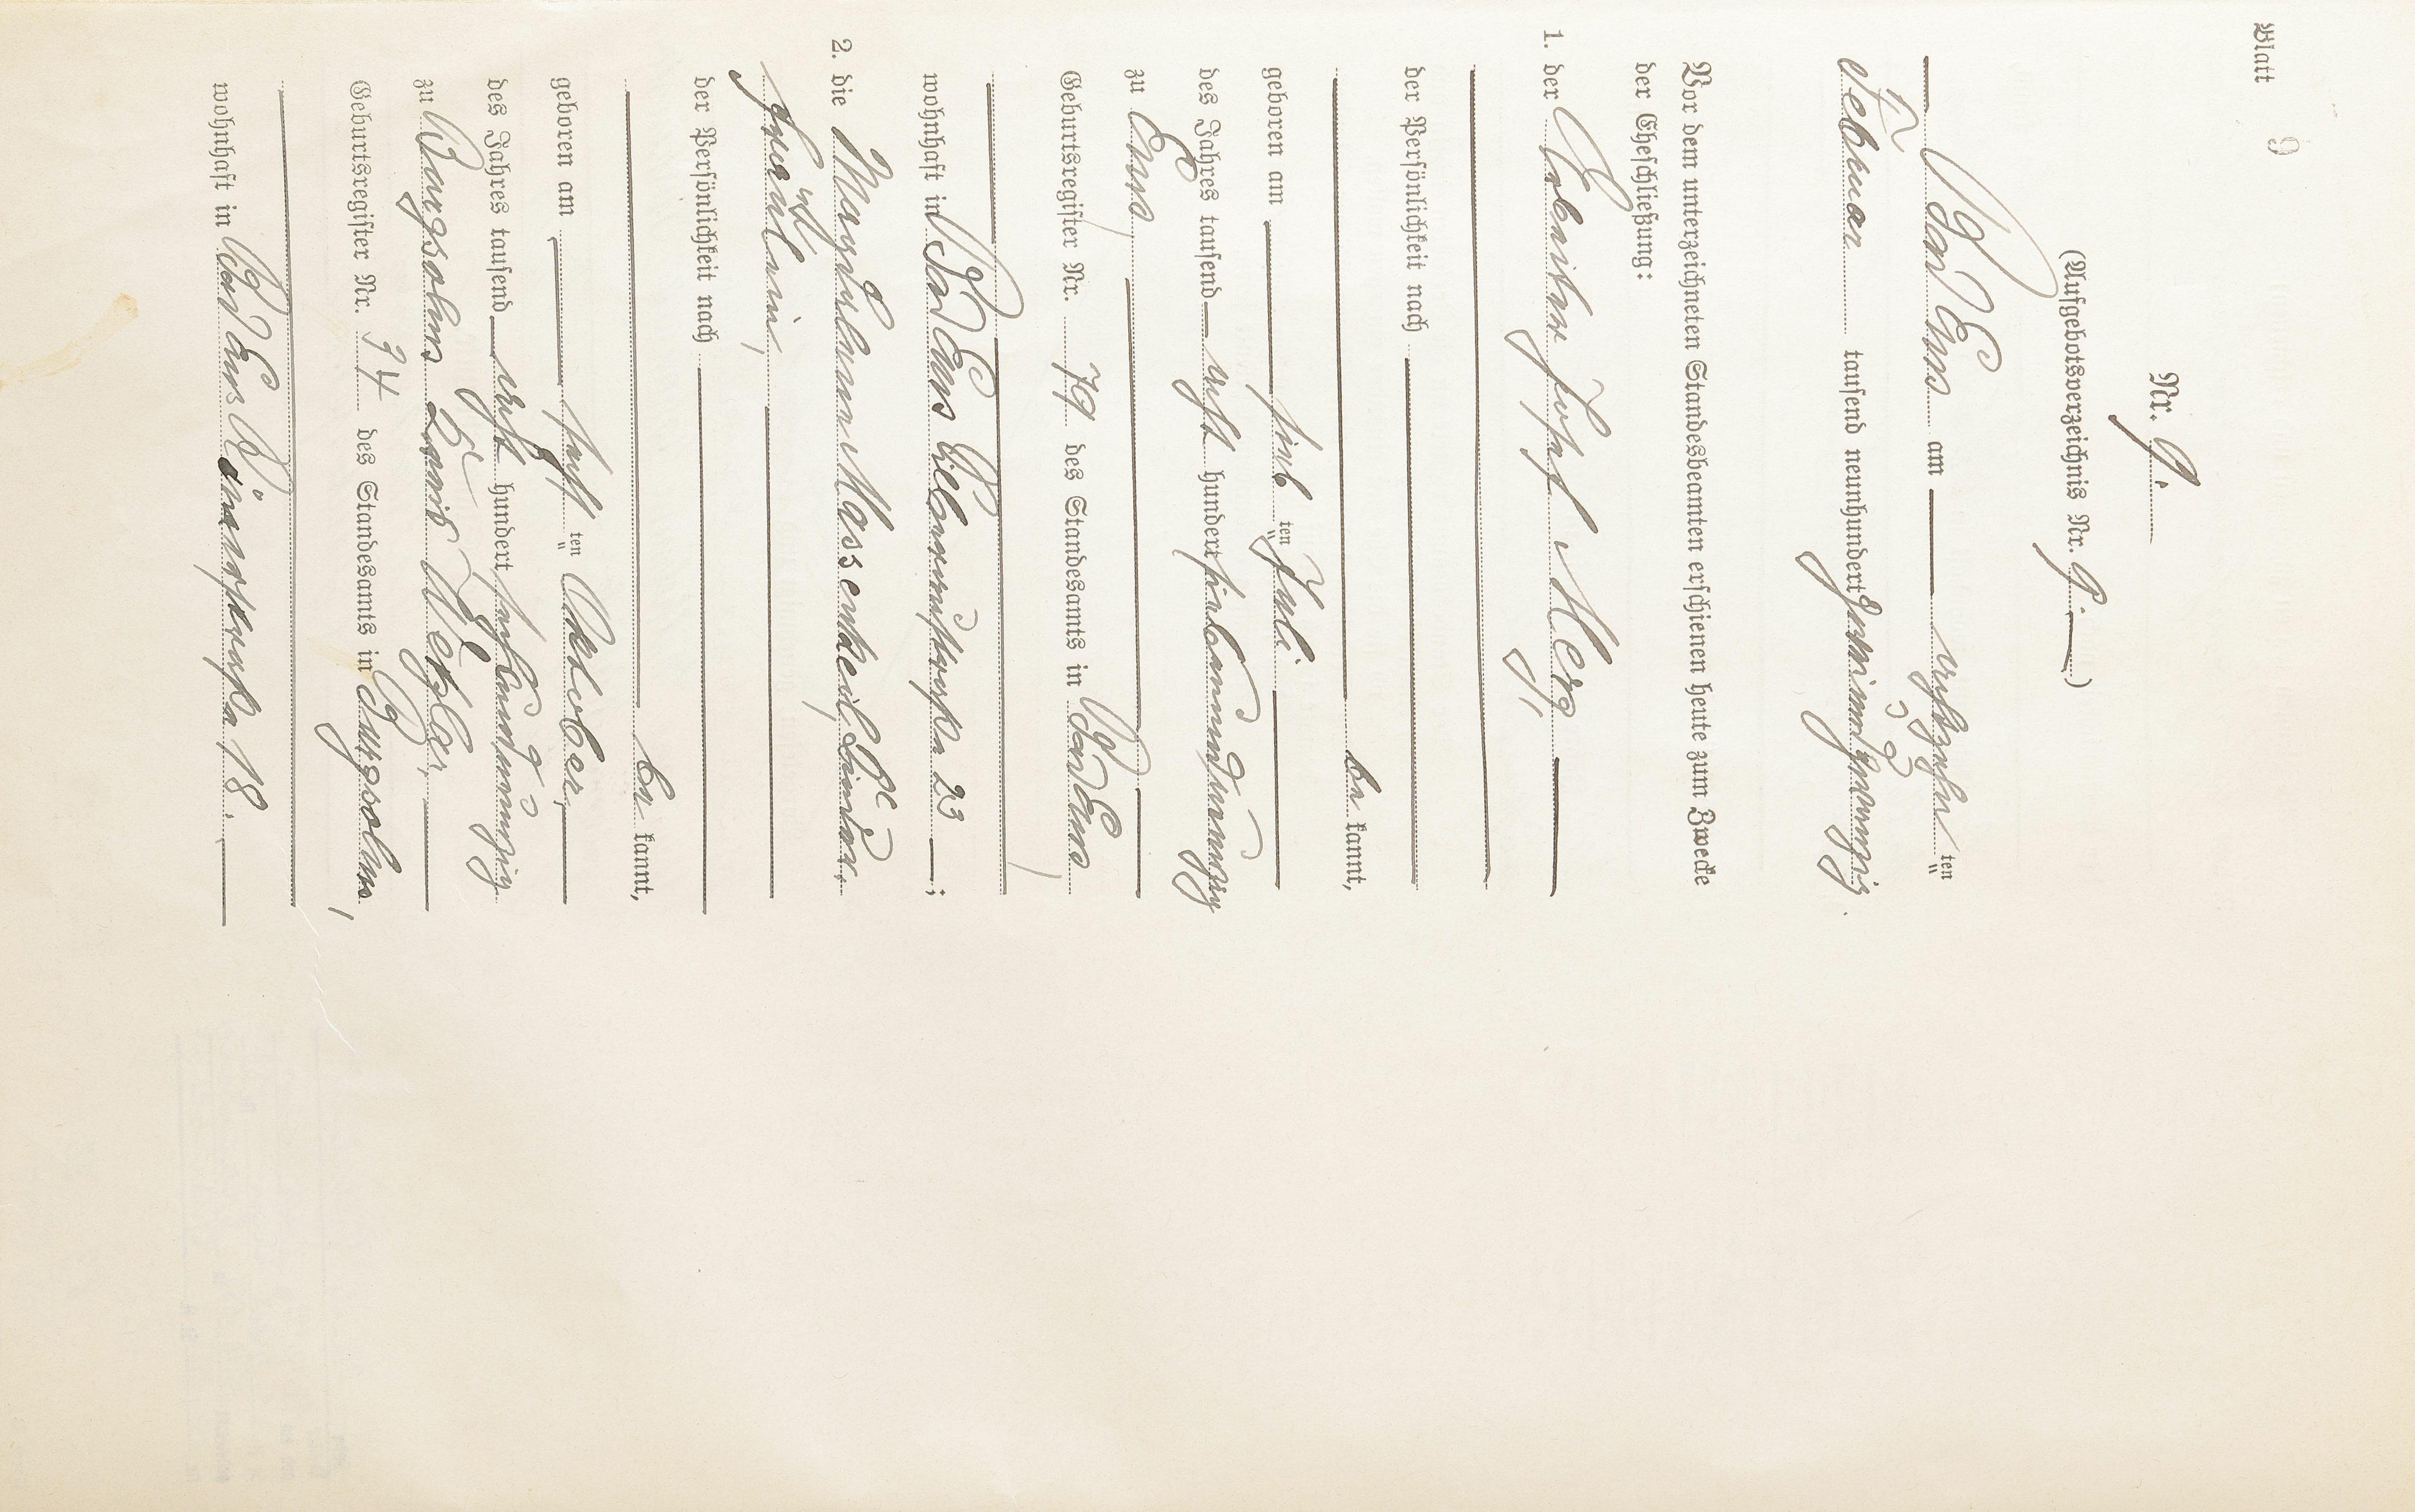 Blatt 9
Nr. 9.
(Aufgebotsverzeichnis Nr. 9.)
Bad Ems am achtzehn ten
Februar tausend neunhundert zweiundzwanzig.
Vor dem unterzeichneten Standesbeamten erschienen heute zum Zwecke
der Eheschließung:
1. der Arbeiter Josef
der Persönlichkeit nach
be kannt,
geboren am sieb ten Juli
des Jahres tausend acht hundert siebenundneunzig
zu Ems
Geburtsregister Nr. 79 des Standesamts in Bad Ems
wohnhaft in Bad Ems Silberaustraße 23;
2. die Magdalena Massenkeil,
der Persönlichkeit nach
be kannt,
geboren am fünf ten Oktober,
des Jahres tausend acht hundert
zu Burgsolms Kreis Wetzlar,
Geburtsregister Nr. 34 des Standesamts in Burgsolms,
wohnhaft in Bad Ems 18.